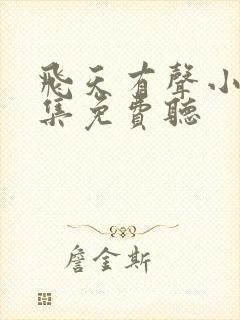 飛天有聲小
集免費聽
詹金斯